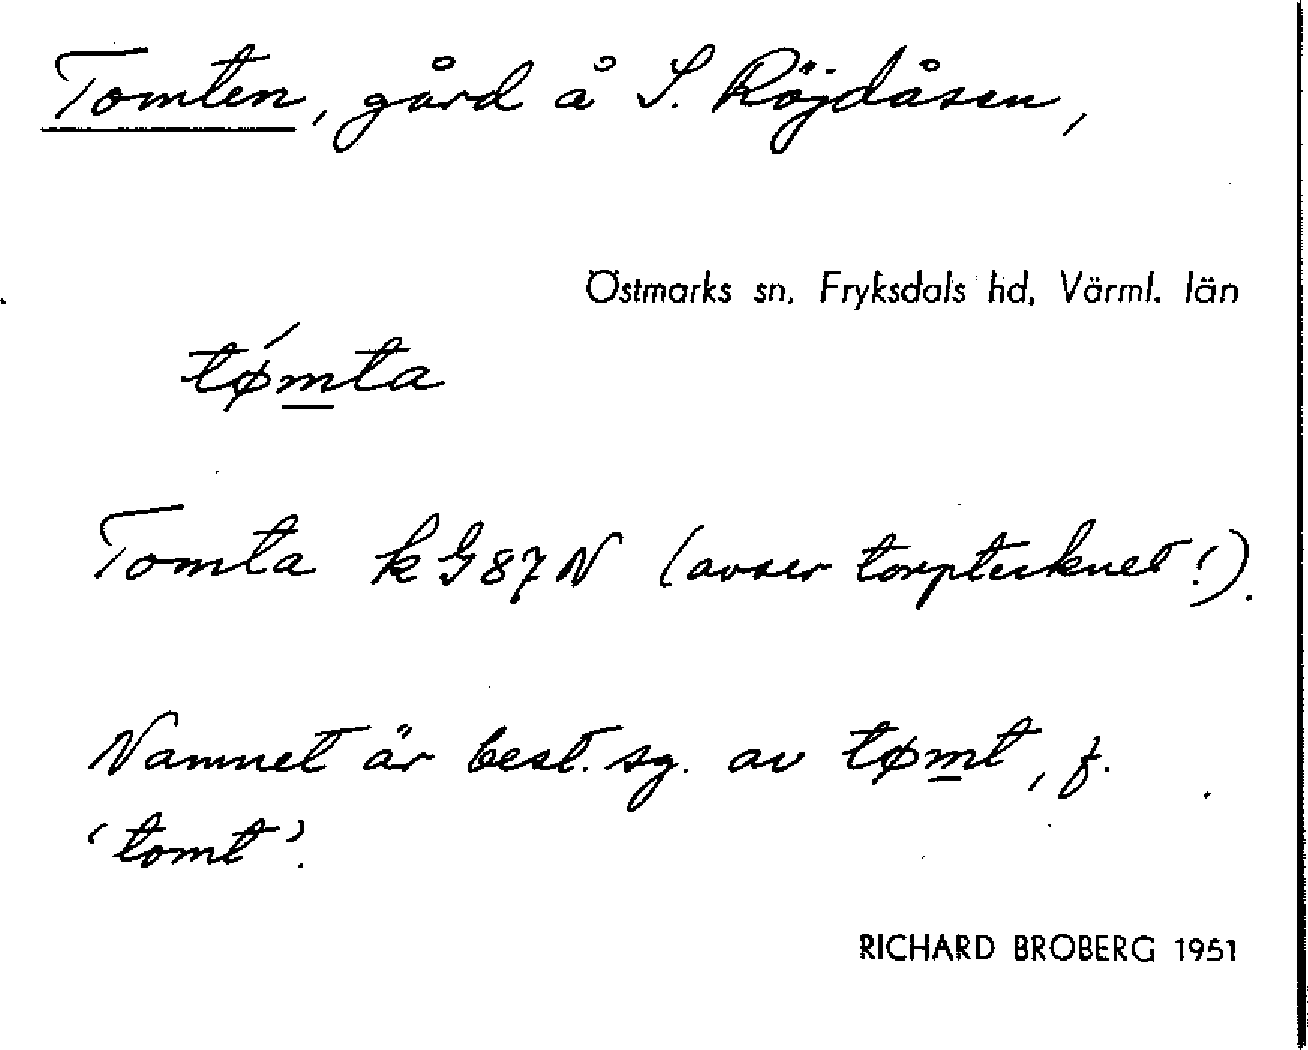 Tomten, gård å S. Röjdåsen,
Östmarks sn, Fryksdals hd, Värml. län
tǿmta
Tomta kG87N (avser torptecknet!).
Namnet är best. sg. av tømt, f.
'tomt'.
RICHARD BROBERG 1951